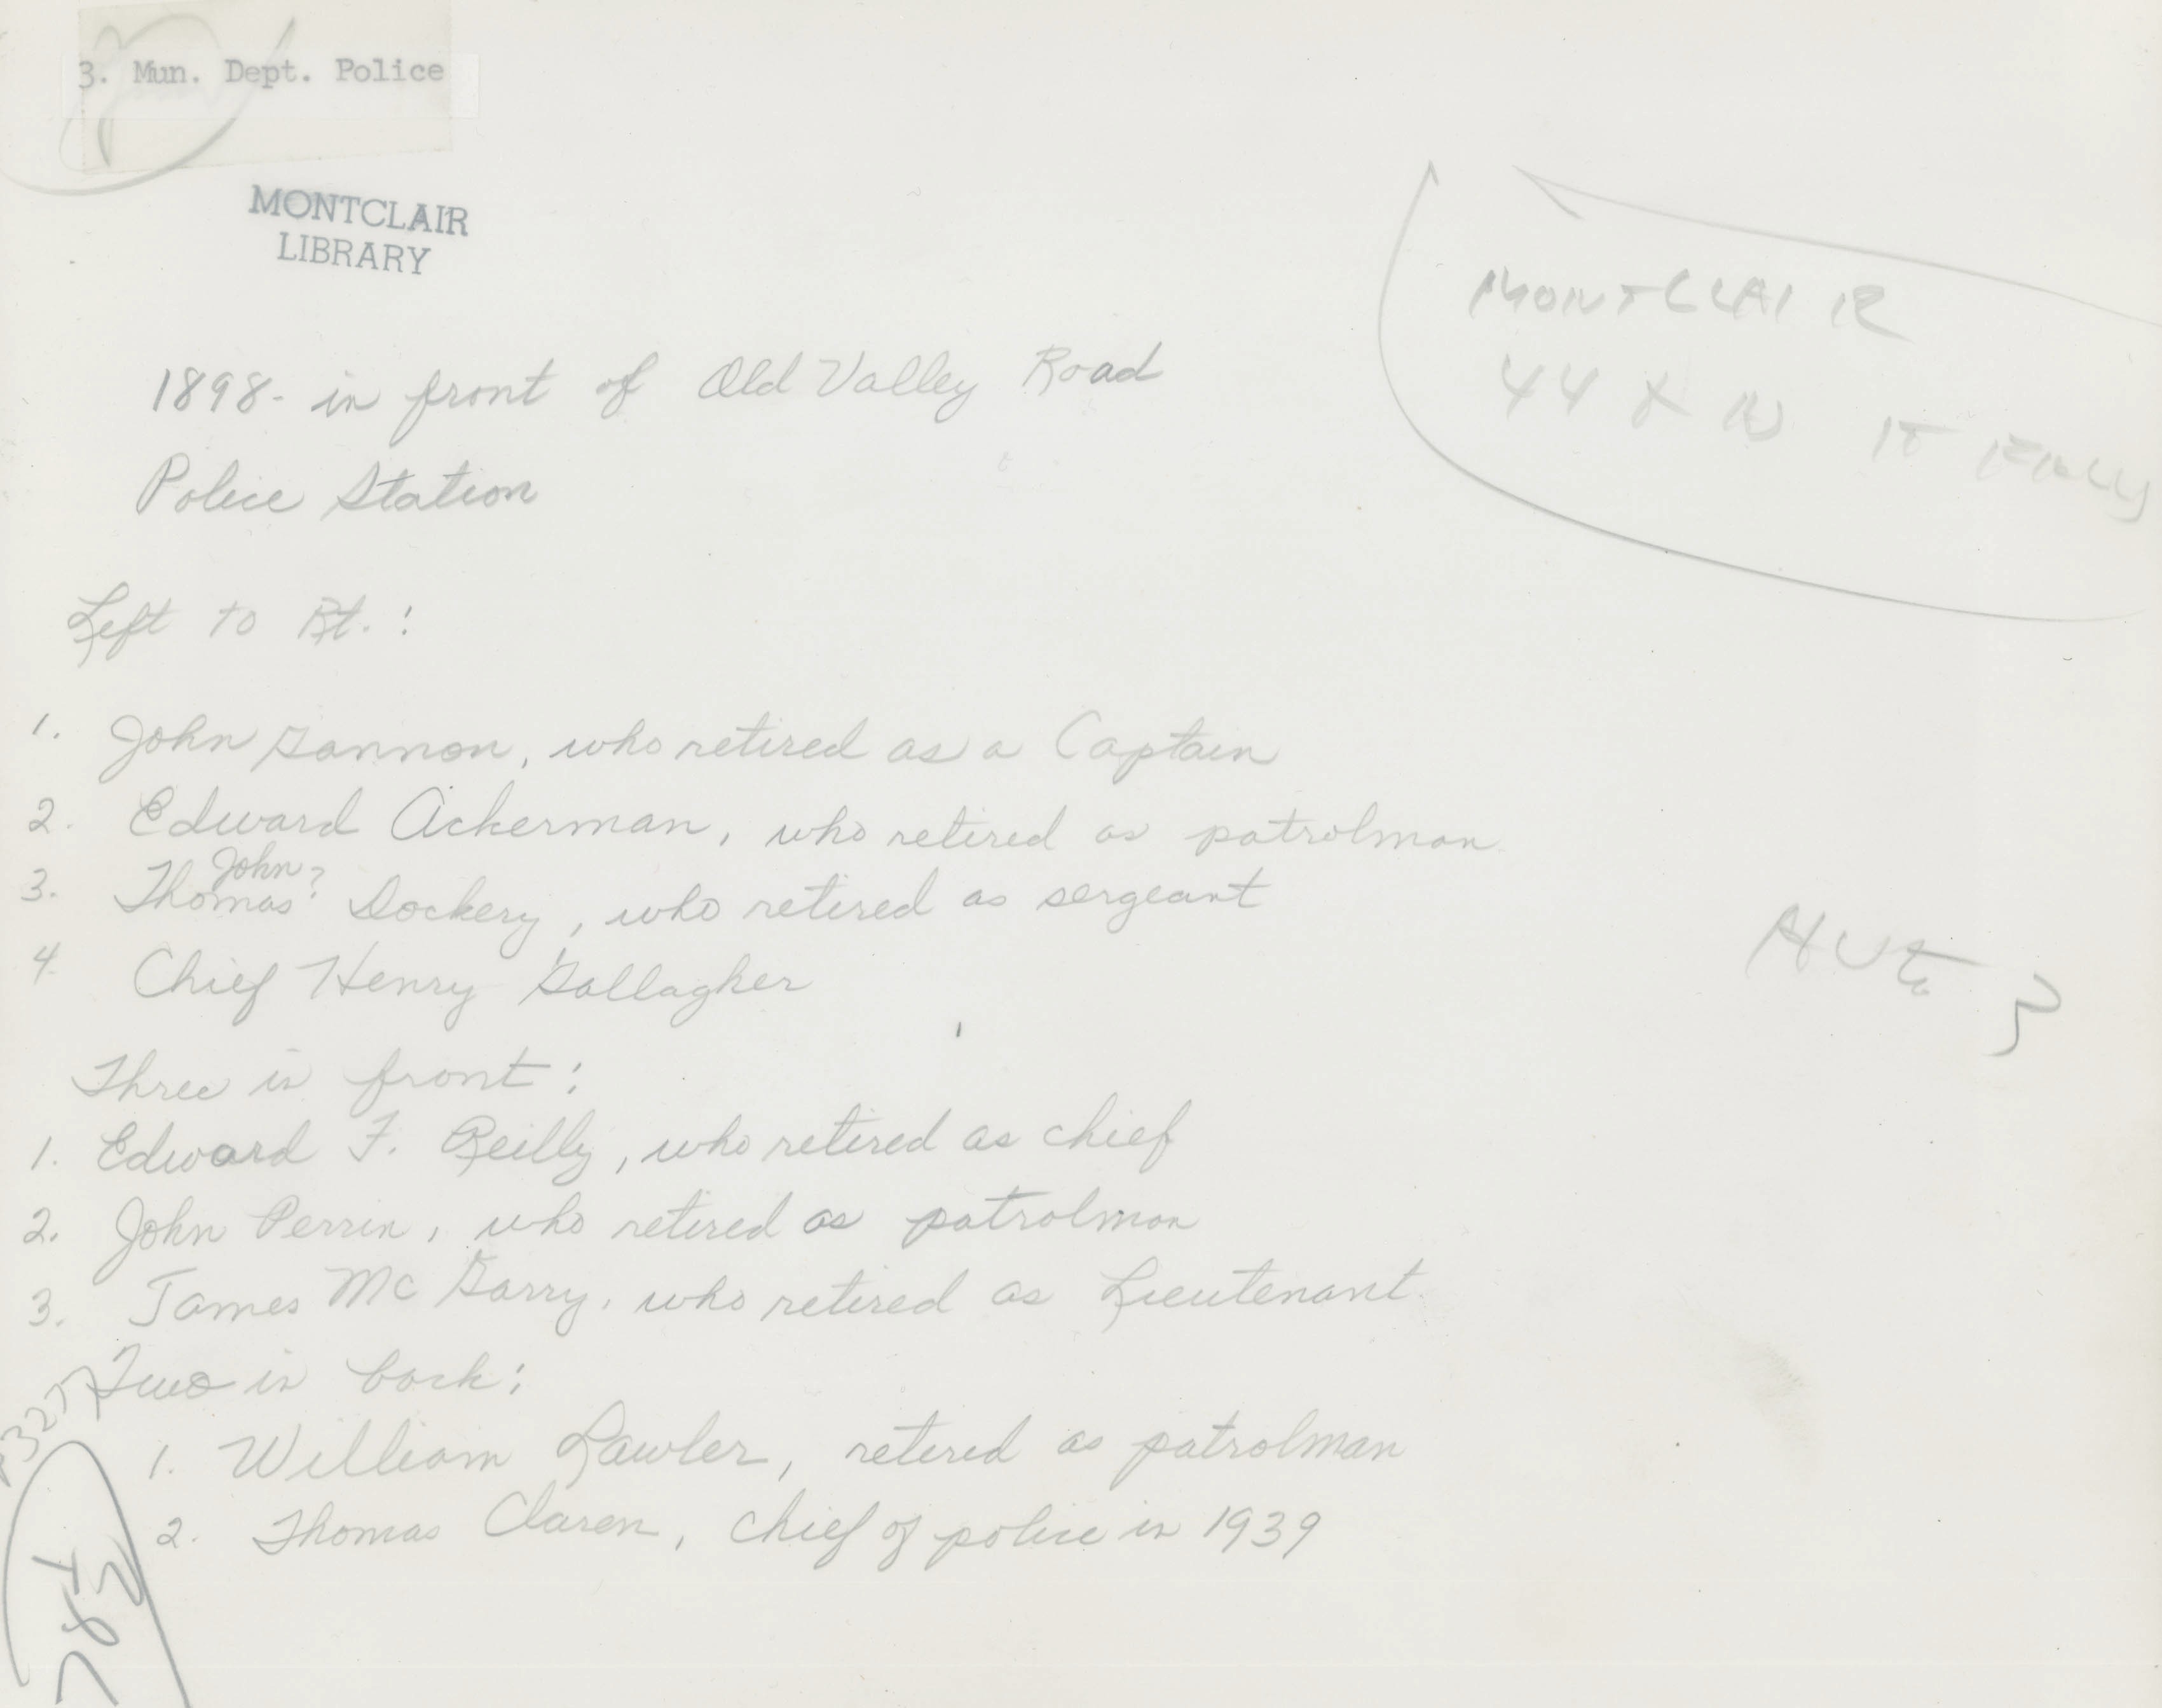 3. Mun. Dept. Police
MONTCLAIR
LIBRARY
MONTCLAIR
44 X
1898- in front of Old Valley Road
Police Station
Left to Rt. :
1. John Gannon, who retired as a Captain
2. Edward Ackerman, who retired as patrolman
John?
3. Thomas? Dockery, who retired as sergeant
4. Chief Henry Gallagher
Three in front:
1. Edward F. Reilly, who retired as chief
2. John Perrin, who retired as patrolman
3. James McGarry, who retired as Lieutenant.
Two in back:
1. William Lawler, retired as patrolman
2. Thomas Claren, chief of police in 1939